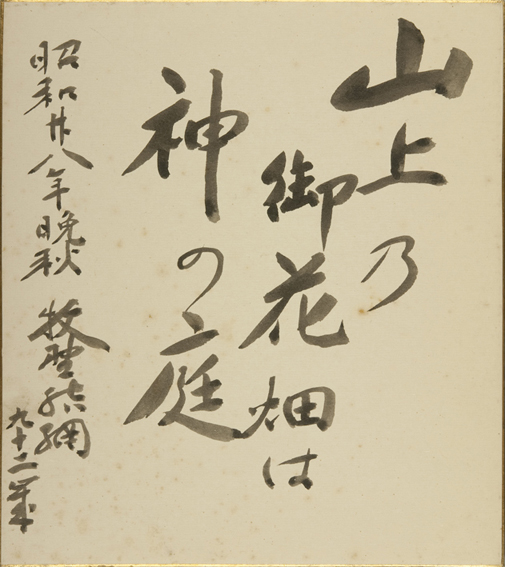 山上乃
御花畑は
神の庭
昭和廿八年晩秋 牧野結網
九十二歳